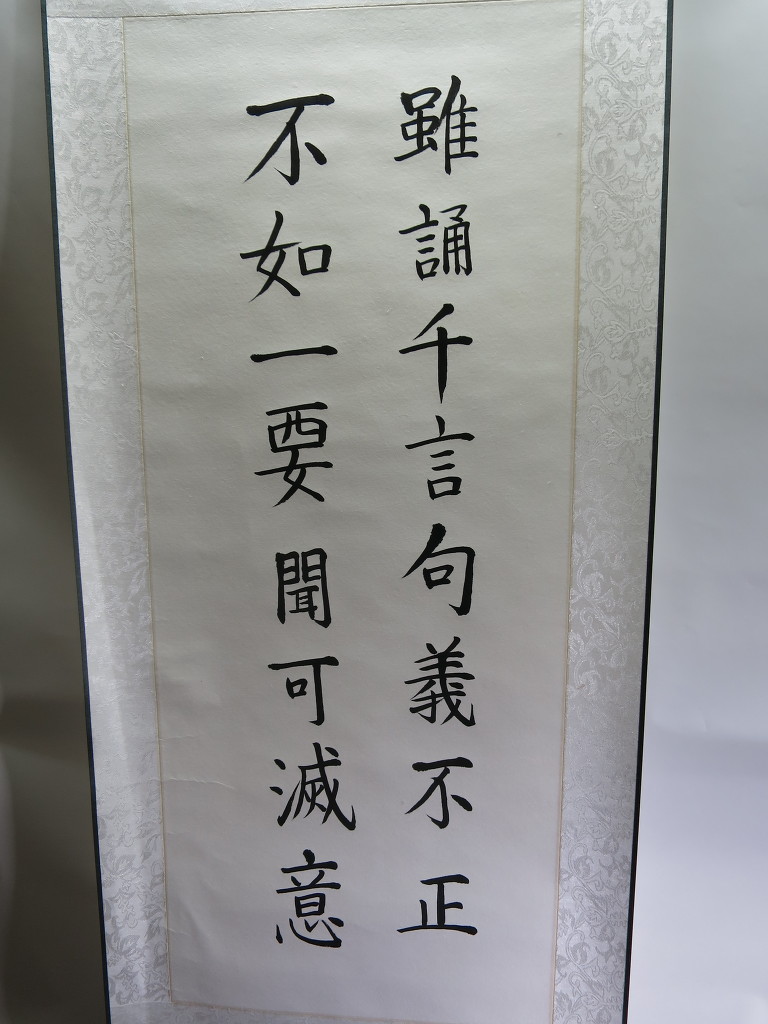 雖誦千言句義不正
不如一要聞可滅意